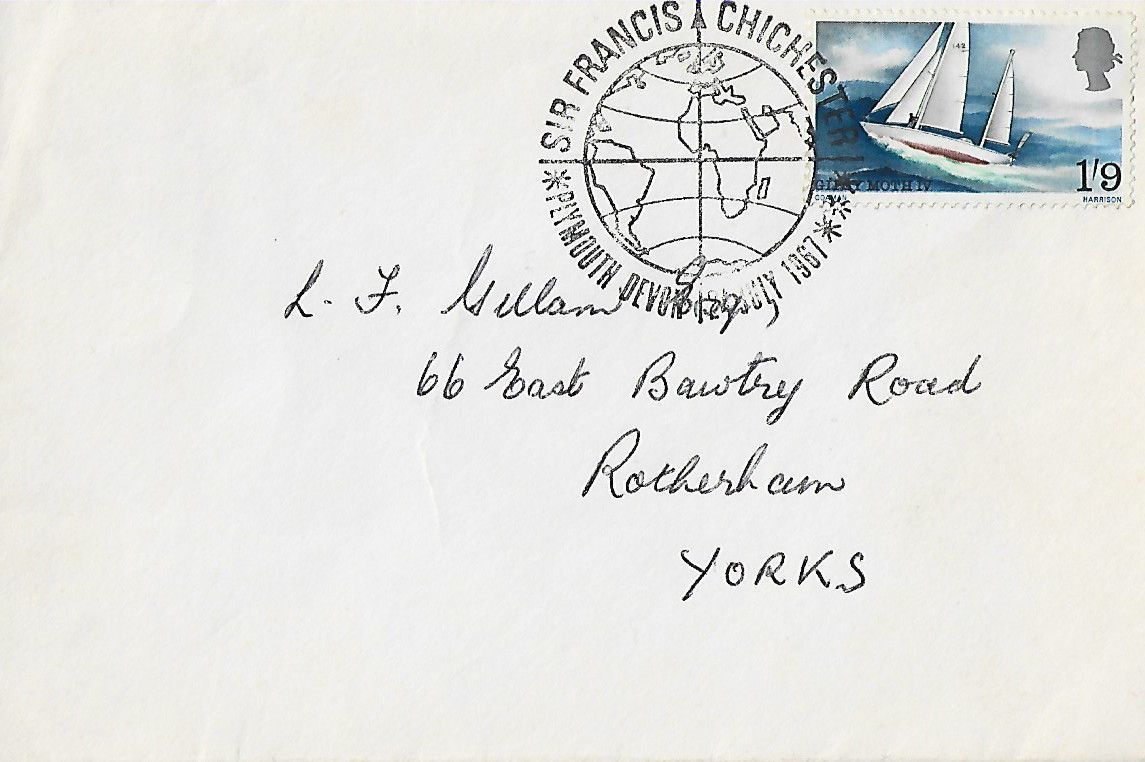 SIR FRANCIS CHICHESTER
PLYMOUTH DEVON JULY 1967
142
GIPSY MOTH IV
1'9
HARRISON
L. F. Gillam Esq,
66 East Bawtry Road
Rotherham
YORKS